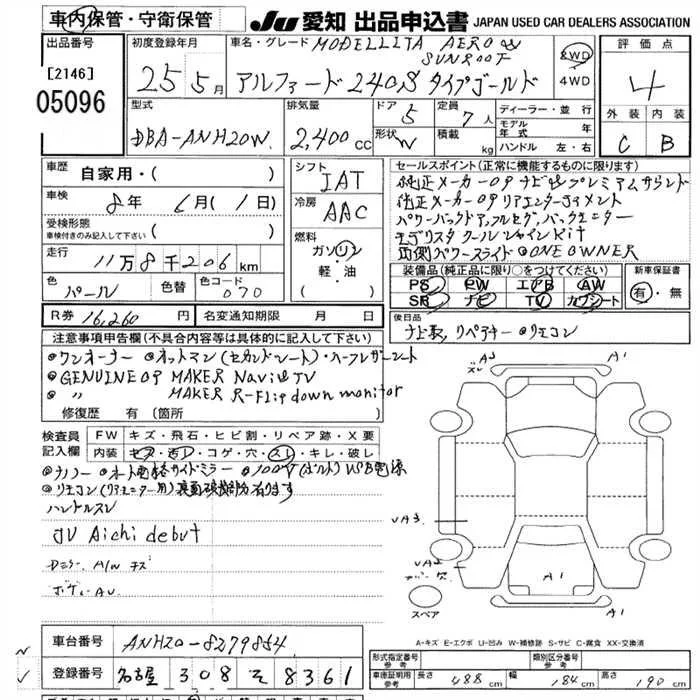 車内保管・守衛保管
JU 愛知 出品申込書 JAPAN USED CAR DEALERS ASSOCIATION
出品番号
[2146]
05096
初度登録年月
25年5月
車名・グレード MODELLISTA AERO W SUNROOF
アルファード 240S タイプゴールド
2WD
4WD
評価点
4
外装 内装
C B
型式
DBA-ANH20W
排気量
2,400cc
ドア 5
形状 W
定員 7人
積載 kg
ディーラー・並行
モデル年式
ハンドル 左・右
車歴 自家用・( )
車検 8年 6月( 1日)
受検形態
車検付きのみ記入して下さい ( )
走行 11万8千206km
色 パール 色替 色コード 070
シフト IAT
冷房 AAC
燃料 ガソリン
軽・油
( )
セールスポイント(正常に機能するものに限ります)
純正メーカーOPナビ プレミアムサウンド
純正メーカーOPリアエンターテイメント
パワーバックドア,フルセグ,バックモニター
モデリスタ クールシャインKit
両側パワースライド ONE OWNER
装備品(純正品に限り○をつけてください)
PS PW エアB AW
SR ナビ TV カワシート
新車保証書
有・無
R券 16,260円 名変通知期限 月 日
後日品
ナビ取,リペアキー リモコン
注意事項申告欄(不具合内容等は具体的に記入して下さい)
ワンオーナー オットマン(セカンドシート)・ハーフレザーシート
GENUINE OP MAKER Navi & TV
〃 MAKER R-Flip down monitor
修復歴 有(箇所 )
検査員記入欄
FW キズ・飛石・ヒビ割・リペア跡・X要
内装 キズ・汚レ・コゲ・穴・スレ・キレ・破レ
ハンドルスレ
JU Aichi debut
Dミラー, A/W キズ
ボディーAU
A3 A1
スレ
UA3
A1 A1
スペア
A-キズ E-エクボ U-凹み W-補修跡 S-サビ C-腐食 XX-交換済
車台番号 ANH20-8279864
登録番号 名古屋 308 そ 8361
形式指定番号 参考
類別区分番号 参考
車庫証明用 参考 長さ 488cm 幅 184cm 高さ 190cm